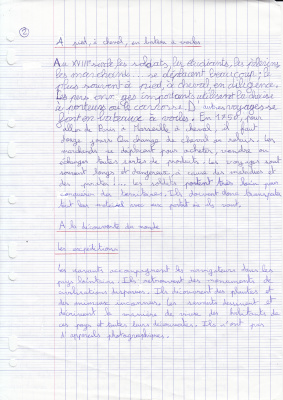 ②
A pied, à cheval, en bateau à voiles
Au XVIIIe siècle les soldats, les étudiants, les pèlerins
les marchands : se déplacent beaucoup : le
plus souvent à pied, à cheval, en diligence.
Les gens importants utilisent la chaise
à porteurs ou le carrosse. D'autres voyages se
font en bateaux à voiles. En 1750, pour
aller de Paris à Marseille à cheval, il faut
douze jours. On change de cheval au relais. Les
marchands se déplacent pour acheter, vendre ou
échanger toutes sortes de produits. Les voyages sont
souvent longs et dangereux, à cause des maladies et
des pirates !... Les soldats partent très loin pour
conquérir des territoires. Ils doivent donc transporter
tout leur matériel avec eux partout où ils vont.
A la découverte du monde
Les expéditions
Les savants accompagnent les navigateurs dans les
pays lointains. Ils retrouvent des monuments de
civilisations disparues. Ils découvrent des plantes et
des animaux inconnus. Les savants dessinent et
décrivent la manière de vivre des habitants de
ces pays et toutes leurs découvertes. Ils n'ont pas
d'appareils photographiques.